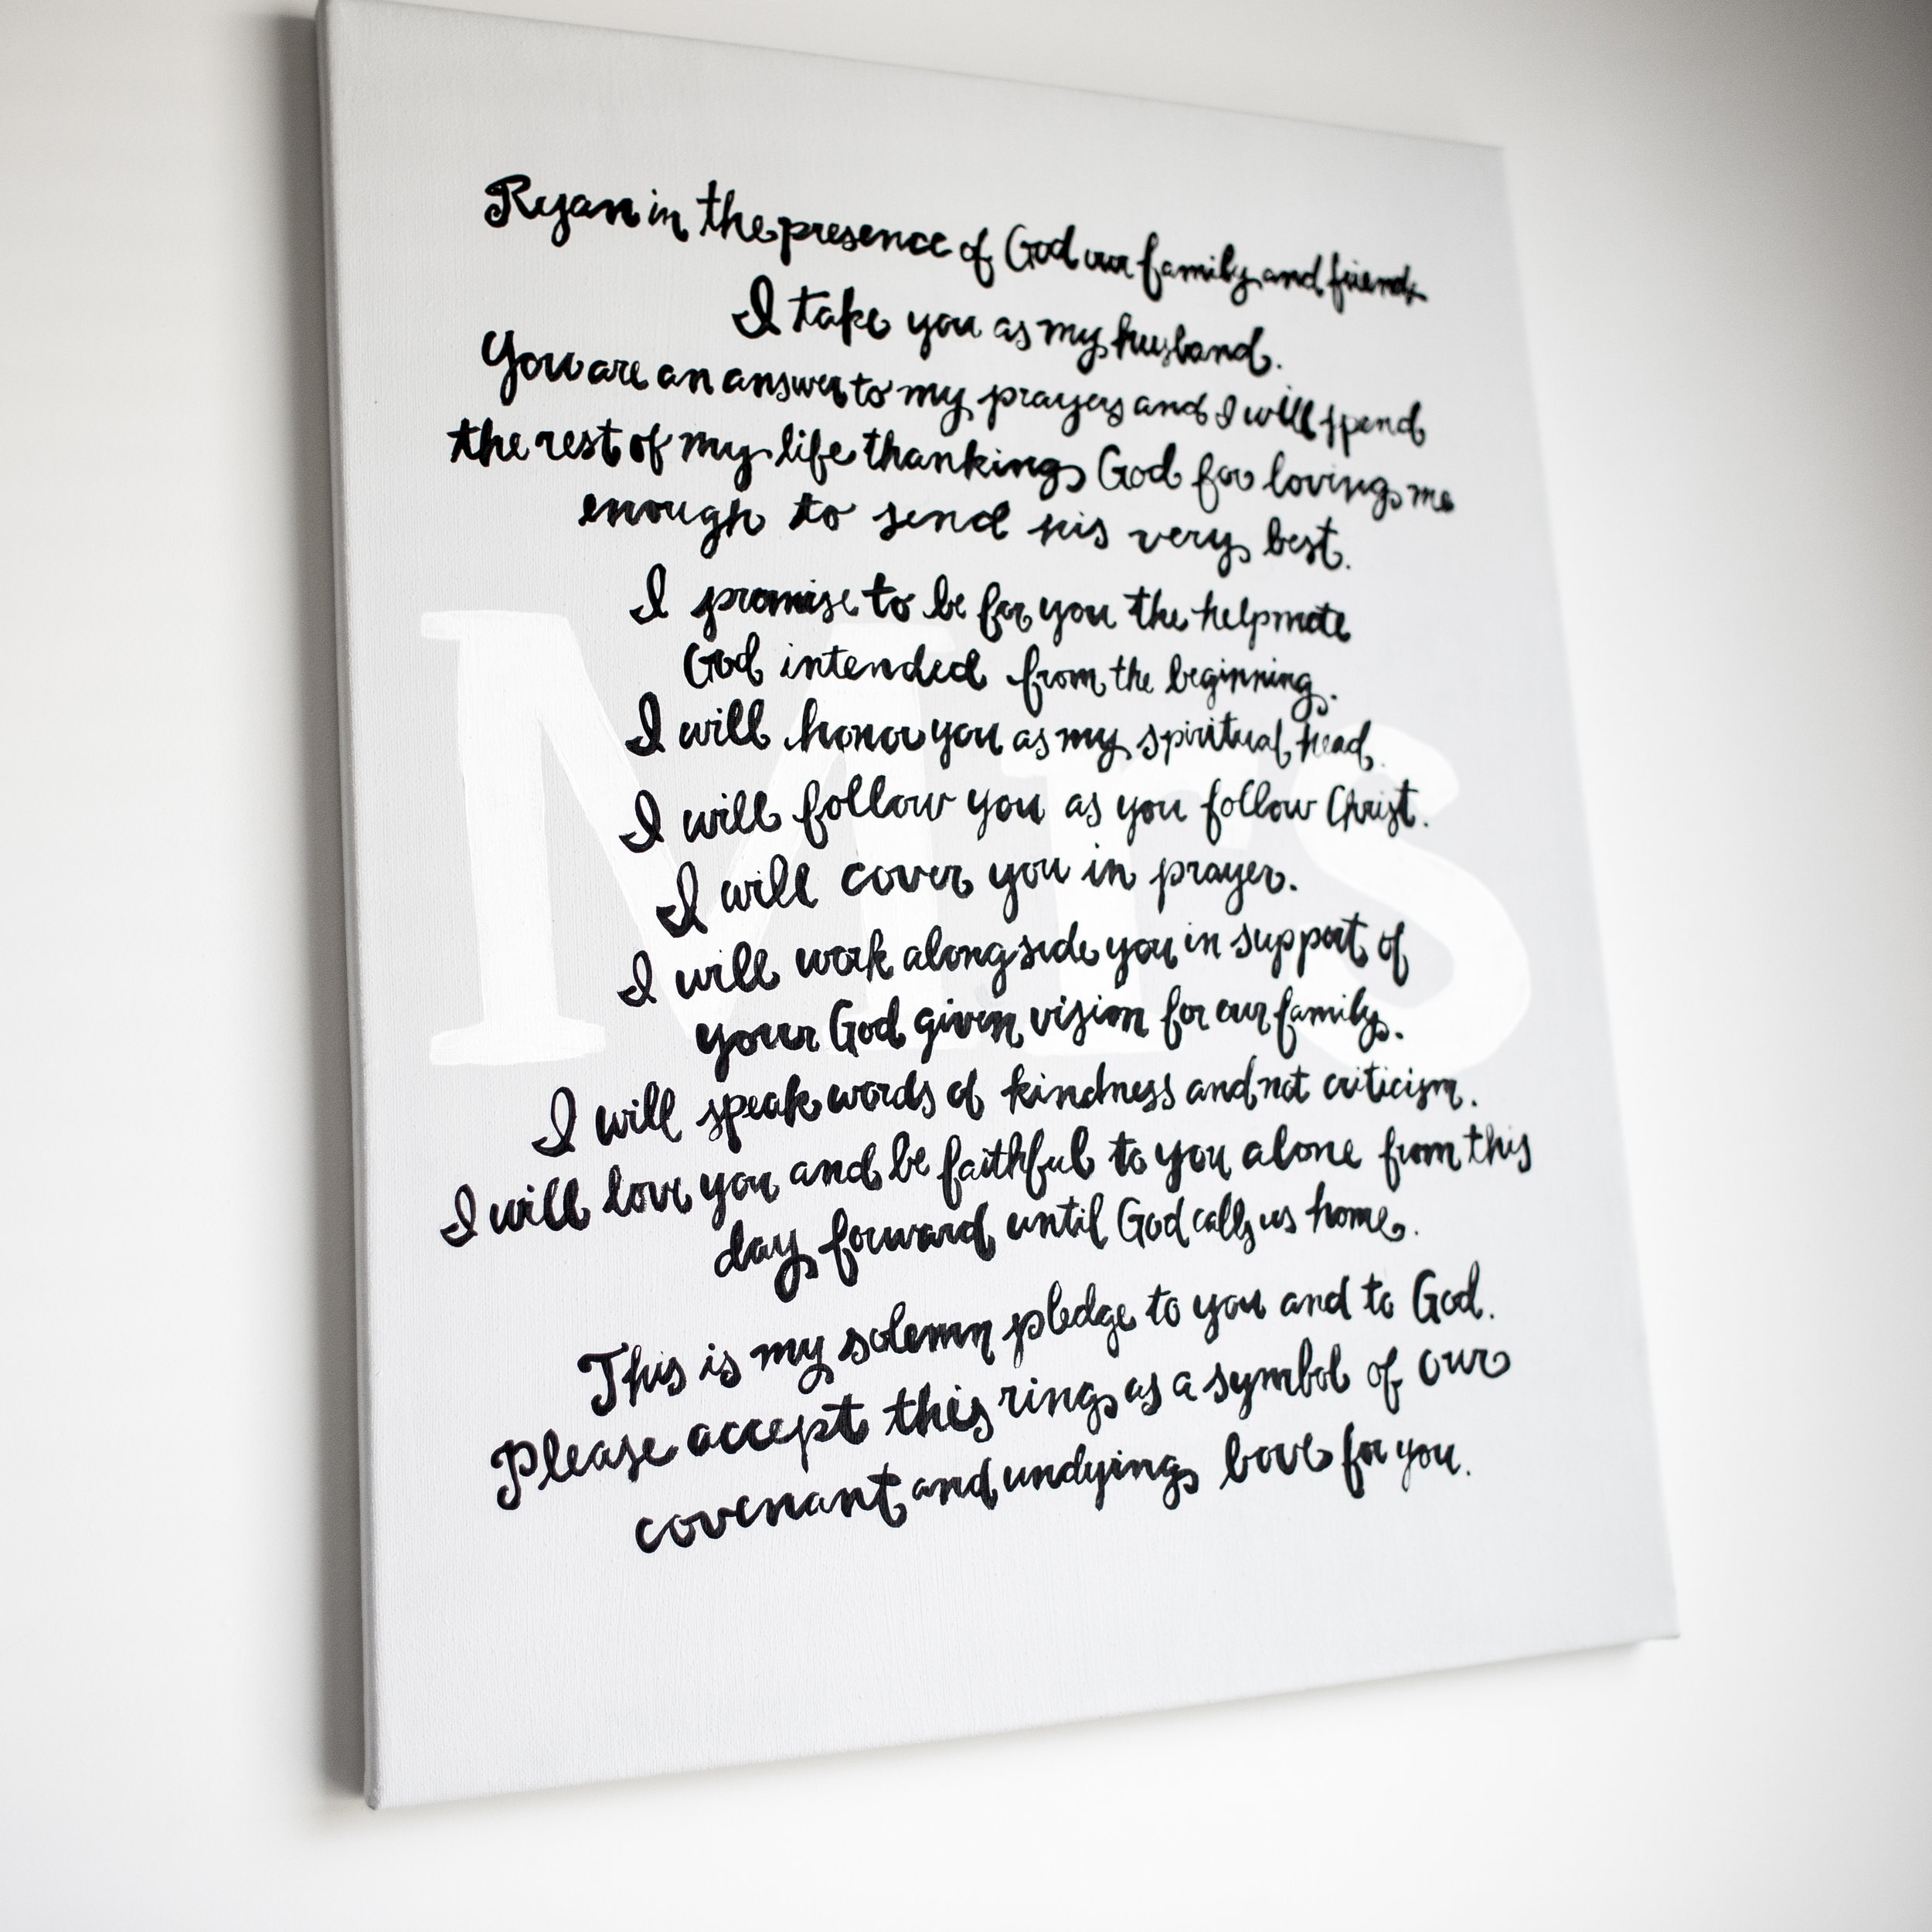 Ryan in the presence of God our family and friends
I take you as my husband.
You are an answer to my prayers and I will spend
the rest of my life thanking God for loving me
enough to send his very best.
I promise to be for you the helpmate
God intended from the beginning.
I will honor you as my spiritual head.
I will follow you as you follow Christ.
I will cover you in prayer.
I will work alongside you in support of
your God given vision for our family.
I will speak words of kindness and not criticism.
I will love you and be faithful to you alone from this
day forward until God calls us home.
This is my solemn pledge to you and to God.
Please accept this ring as a symbol of our
covenant and undying love for you.
Mrs